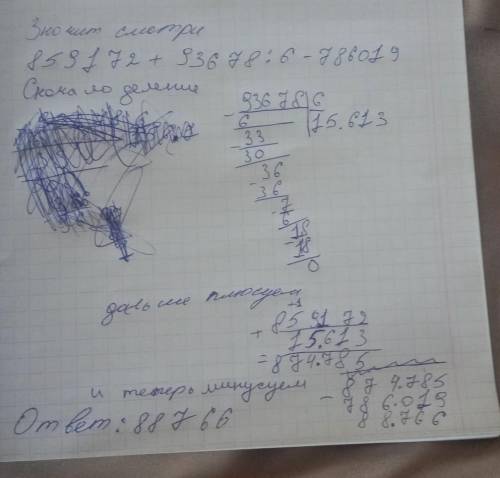 Значит смотри
859172 + 93678 : 6 - 786019
Сначало деление
- 93678 | 6
6
15.613
- 33
30
- 36
36
- 7
6
- 18
18
0
дальше плюсуем
+ 859172
15.613
= 874.785
и теперь минусуем
874.785
- 786.019
88.766
Ответ: 88766